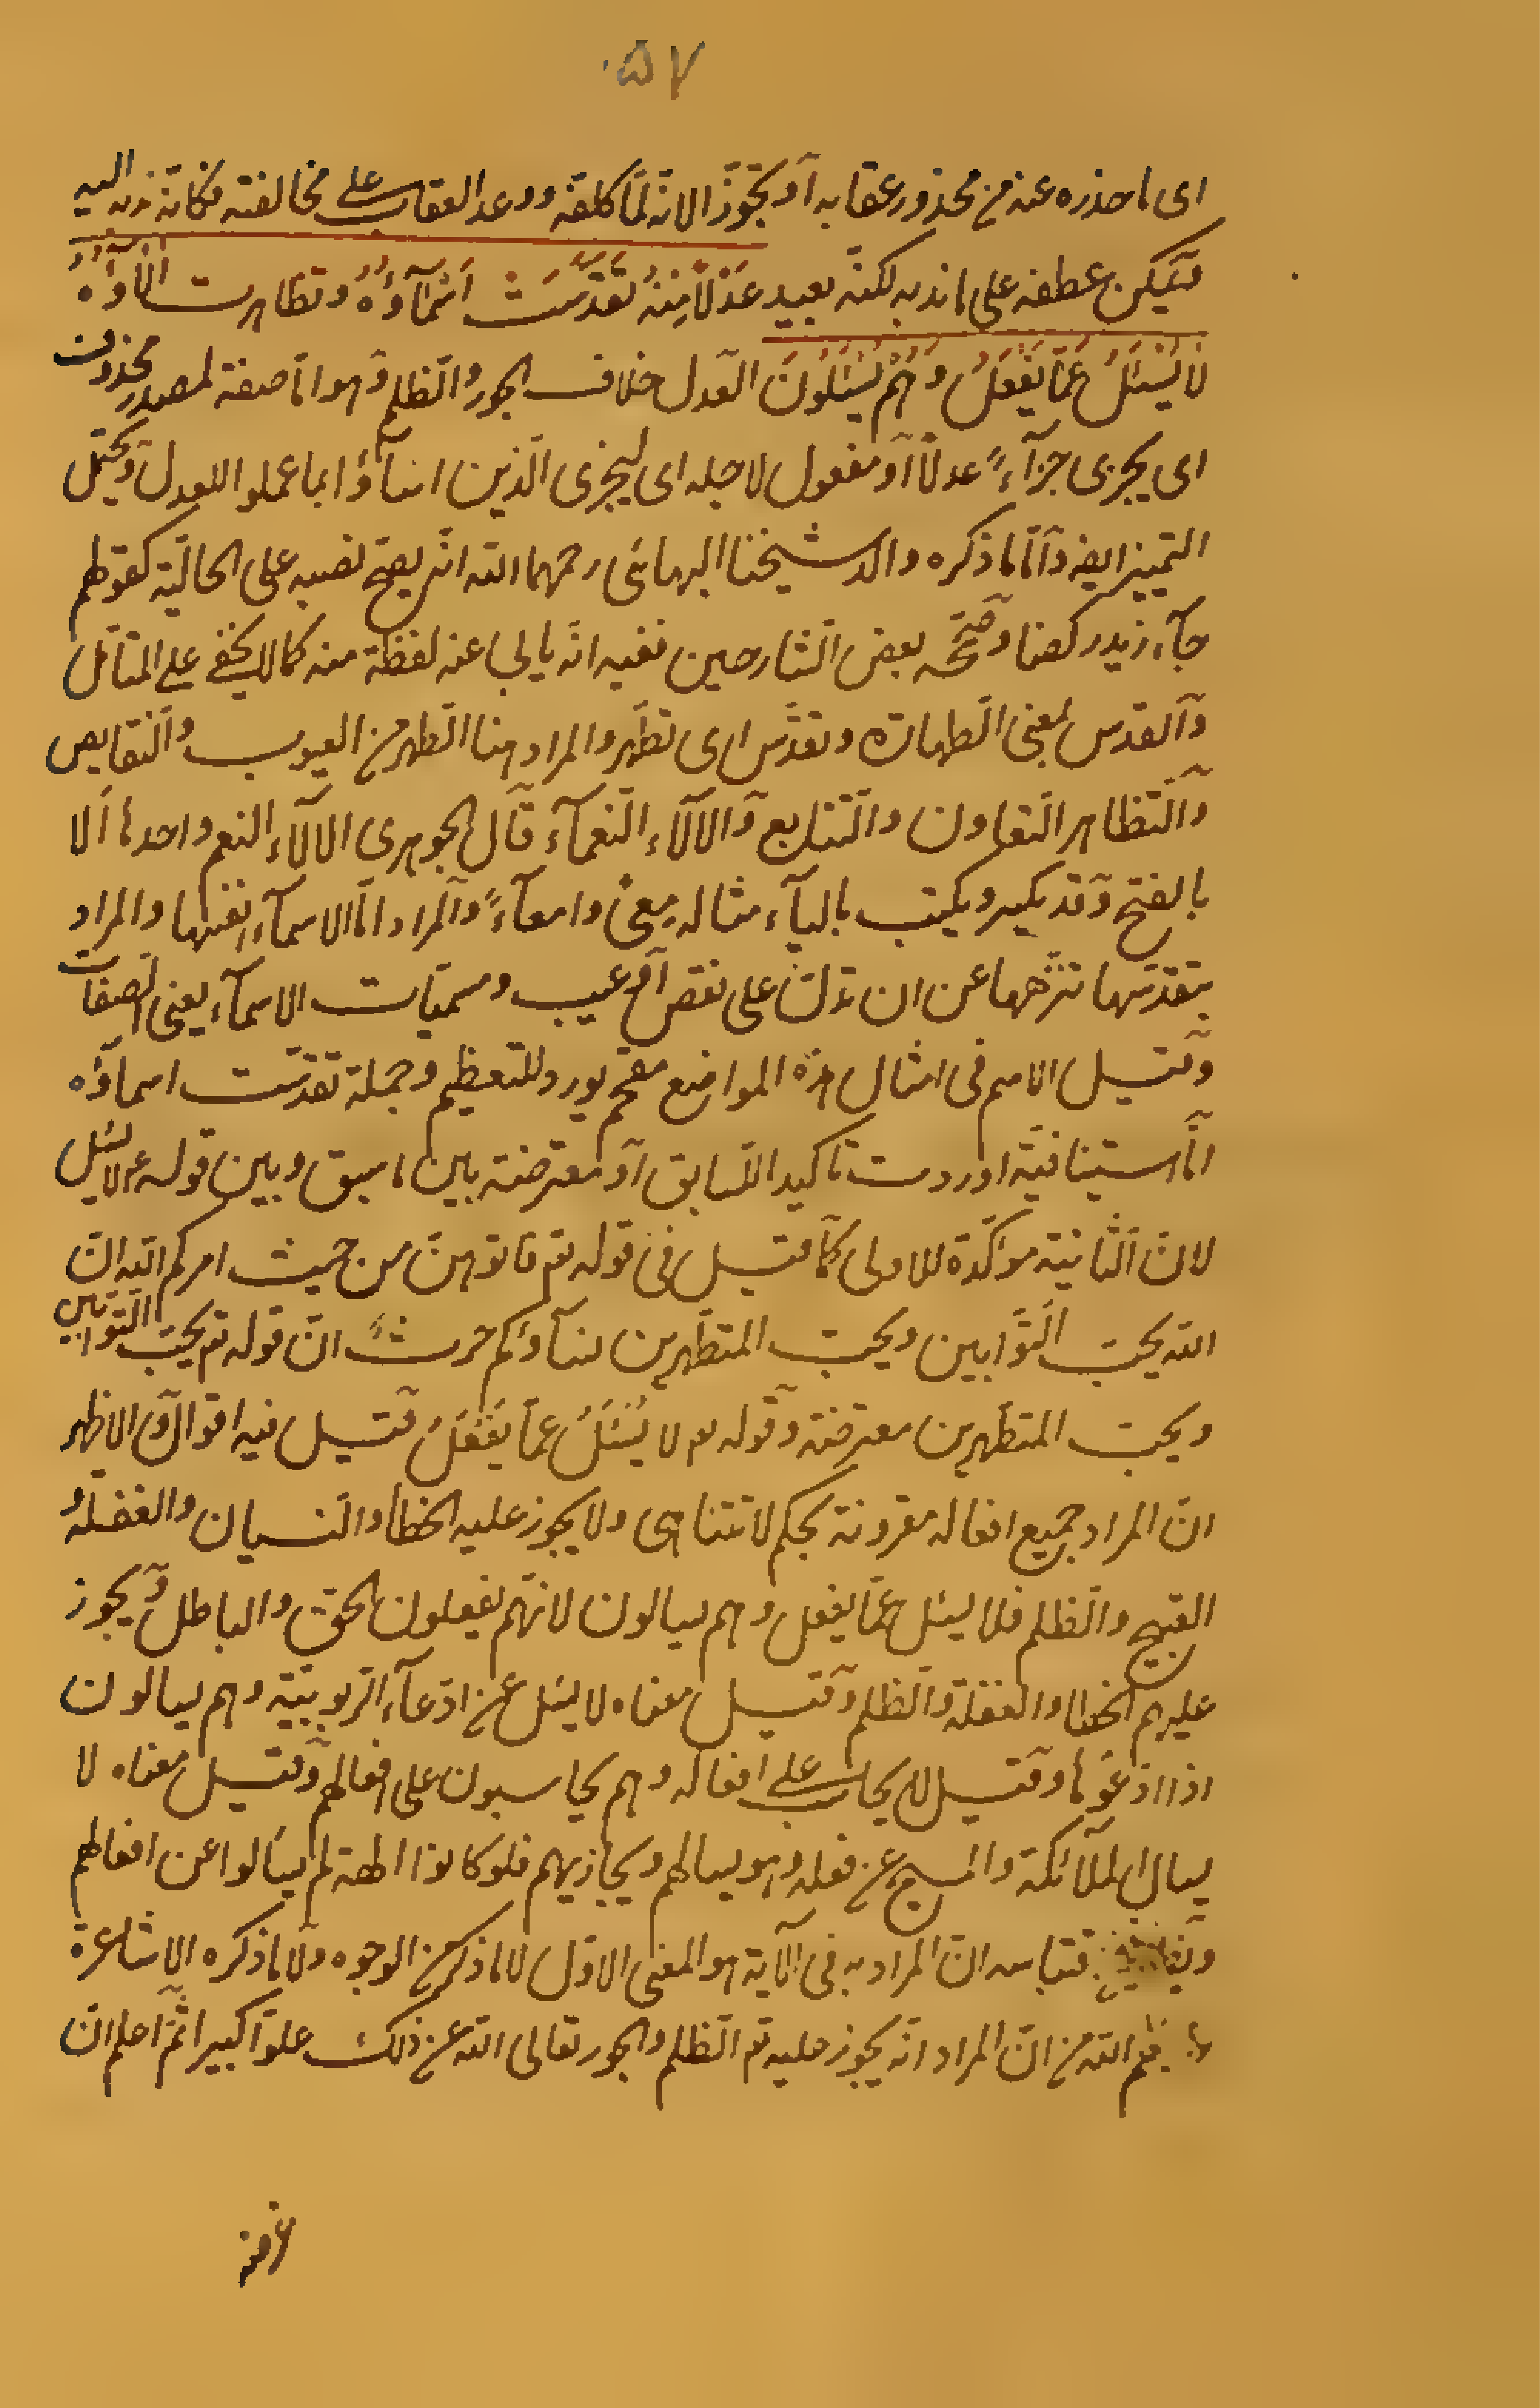 ۵۷
اى ما حذره عنه من محذور عقابه او تجوّز الا انه لمّا كلفه ووعد العقاب على مخالفته فكانّه ندبه اليه
فيمكن عطفه على ما ندبه لكنّه بعيد عَدْلاً مِنْهُ تَقَدَّسَتْ اَسْمَآؤُهُ وَتظاهرت الَآؤُهُ
لَا يُسْئَلُ عَمَّا يَفْعَلُ وَهُمْ يُسْئَلُونَ العدل خلاف الجور والظلم وهو امّا صفة لمصدر محذوف
اى يجزى جزآءً عدلاً او مفعول لاجله اى ليجزى الّذين اسآؤا بما عملوا للعدل ويحتمل
التميز ايضا وامّا ما ذكره والد شيخنا البهائى رحمهما الله انّه يصحّ نصبه على الحاليّة كقولهم
جآء زيد ركضا وصحّحه بعض الشارحين ففيه انّه يابى عنه لفظة منه كما لا يخفى على المتامّل
والقدس بمعنى الطهارة وتقدّس اى تطهّر والمراد هنا التطهر من العيوب والنقايص
والتظاهر التعاون والتتابع والآلآء النعمآء قال الجوهرى الالآء النعم واحدها اَلا
بالفتح وقد يكسر ويكتب باليآء مثاله مِعىً وامعآءً والمراد امّا الاسمآء انفسها والمراد
بتقدّسها تنزّهها عن ان تدلّ على نقص او عيب ومسمّيات الاسمآء يعنى الصفات
وقيل الاسم فى امثال هذه المواضع مقحم يورد للتعظيم وجملة تقدّست اسماؤه
امّا استينافيّة اوردت تاكيدا للسابق او معترضة بين ما سبق وبين قوله ع لا يسئل
لانّ الثانية مؤكّدة للاولى كما قيل فى قوله تم فاتوهنّ من حيث امركم الله انّ
الله يحبّ التوّابين ويحبّ المتطهّرين نسآؤكم حرثٌ انّ قوله تم يحبّ التوّابين
ويحبّ المتطهّرين معترضة وقوله ع لَا يُسْئَلُ عَمَّا يَفْعَلُ قيل فيه اقوال والاظهر
انّ المراد جميع افعاله مقرونة بحكم لا تتناهى ولا يجوز عليه الخطأ والنسيان والغفلة و
القبيح والظلم فلا يسئل عمّا يفعل وهم يسالون لانّهم يفعلون الحق والباطل ويجوز
عليهم الخطا والغفلة والظلم وقيل معناه لا يسئل عن ادّعآء الربوبيّة وهم يسالون
اذا ادّعوها وقيل لا يحاسب على افعاله وهم يحاسبون على افعالهم وقيل معناه لا
يسال الملآئكة والمسيح عن فعله وهو يسالهم ويجازيهم فلو كانوا الهة لم يسألوا عن افعالهم
قتباسه انّ المراد به فى الآية هو المعنى الاوّل لا ما ذكر من الوجوه ولا ما ذكره الاشاعرة
الله من انّ المراد انّه يجوز عليه تم الظلم والجور تعالى الله عن ذلك علوّا كبيرا ثمّ اعلم انّ